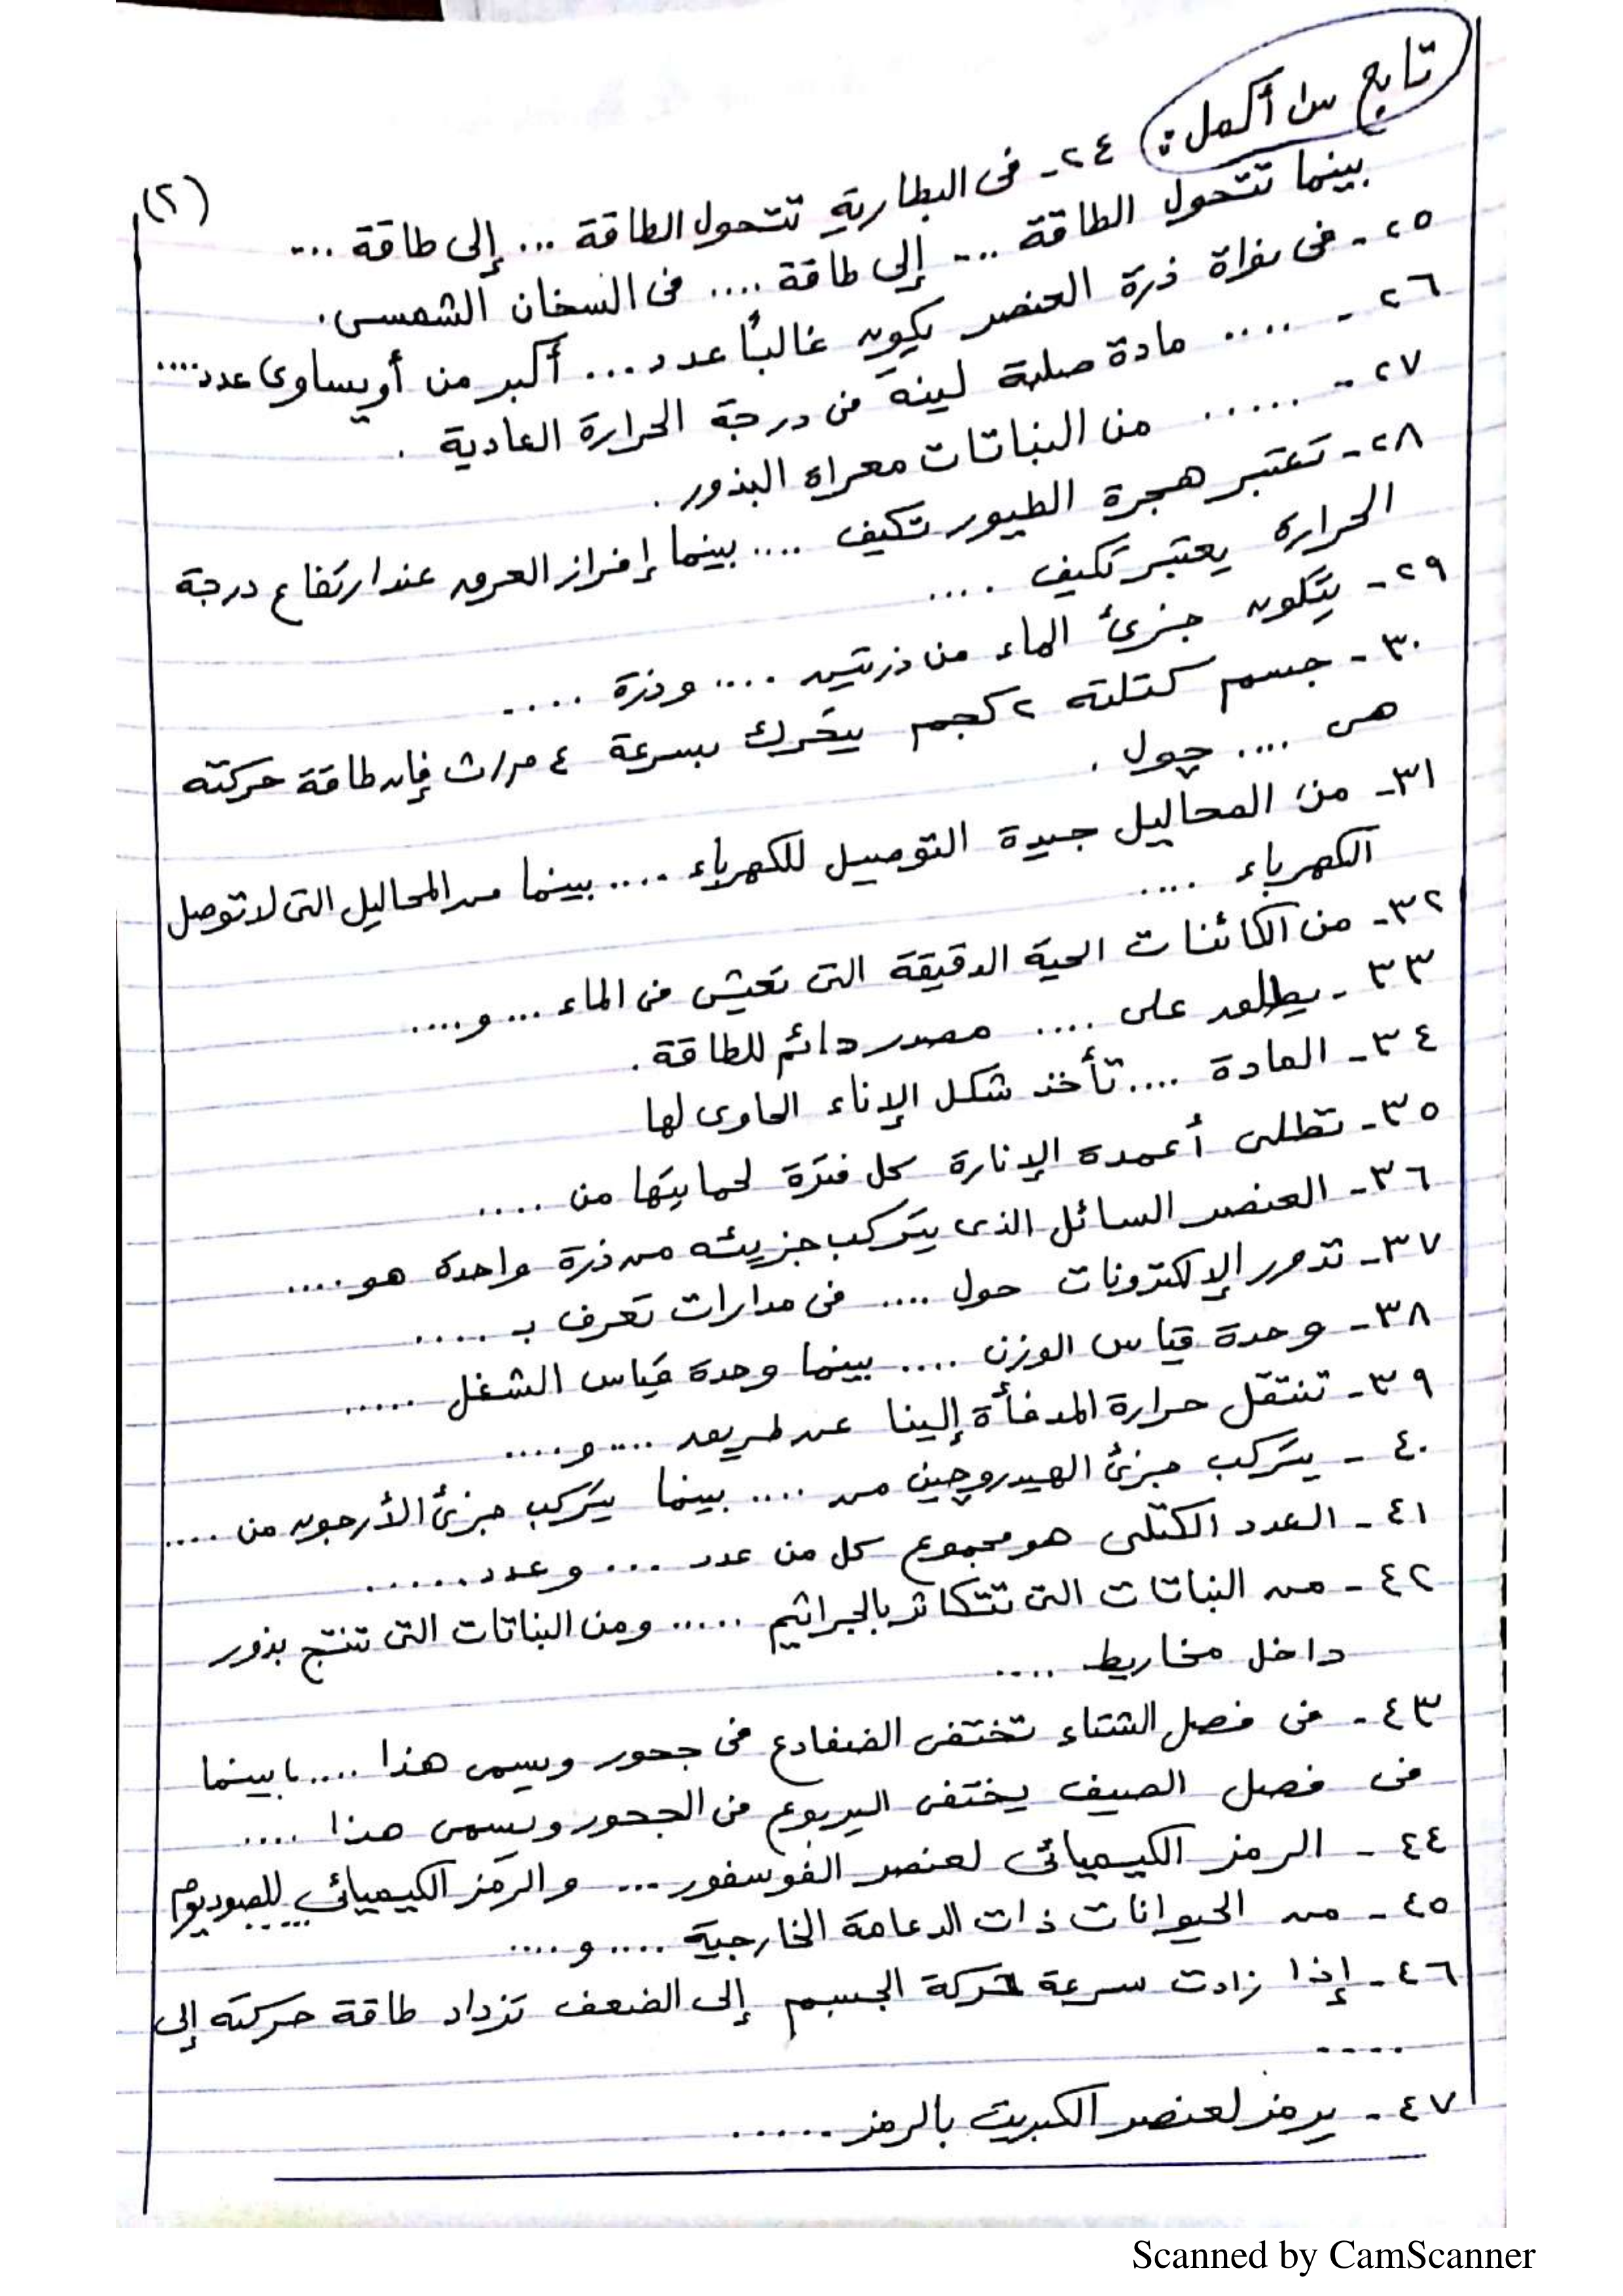 تابع س١ أكمل :
(٢)
٢٤- فى البطارية تتحول الطاقة ... إلى طاقة ....
بينما تتحول الطاقة .... إلى طاقة .... فى السخان الشمسى .
٢٥- فى نواة ذرة العنصر يكون غالبًا عدد .... أكبر من أو يساوى عدد ....
٢٦- .... مادة صلبة لينة فى درجة الحرارة العادية .
٢٧- ...... من النباتات معراة البذور .
٢٨- تعتبر هجرة الطيور تكيف .... بينما إفراز العرق عند ارتفاع درجة
الحرارة يعتبر تكيف ....
٢٩- يتكون جزئ الماء من ذرتين .... وذرة ....
٣٠- جسم كتلته ٢ كجم يتحرك بسرعة ٤ م/ث فإن طاقة حركته
هى .... چول .
٣١- من المحاليل جيدة التوصيل للكهرباء .... بينما من المحاليل التى لا توصل
الكهرباء ....
٣٢- من الكائنات الحية الدقيقة التى تعيش فى الماء ... و ....
٣٣- يطلق على .... مصدر دائم للطاقة .
٣٤- المادة .... تأخذ شكل الإناء الحاوى لها
٣٥- تطلى أعمدة الإنارة كل فترة لحمايتها من ....
٣٦- العنصر السائل الذى يتركب جزيئه من ذرة واحدة هو ....
٣٧- تدور الإلكترونات حول .... فى مدارات تعرف بـ ....
٣٨- وحدة قياس الوزن .... بينما وحدة قياس الشغل .....
٣٩- تنتقل حرارة المدفأة إلينا عن طريق .... و ....
٤٠- يتركب جزئ الهيدروچين من .... بينما يتركب جزئ الأرجون من ....
٤١- العدد الكتلى هو مجموع كل من عدد ... و عدد ......
٤٢- من النباتات التى تتكاثر بالجراثيم ..... ومن النباتات التى تنتج بذور
داخل مخاريط ....
٤٣- فى فصل الشتاء تختفى الضفادع فى جحور ويسمى هذا .... ، بينما
فى فصل الصيف يختفى اليربوع فى الجحور ويسمى هذا ....
٤٤- الرمز الكيميائى لعنصر الفوسفور ... و الرمز الكيميائى للصوديوم .....
٤٥- من الحيوانات ذات الدعامة الخارجية .... و ....
٤٦- إذا زادت سرعة حركة الجسم إلى الضعف تزداد طاقة حركته إلى
....
٤٧- يرمز لعنصر الكبريت بالرمز ......
Scanned by CamScanner